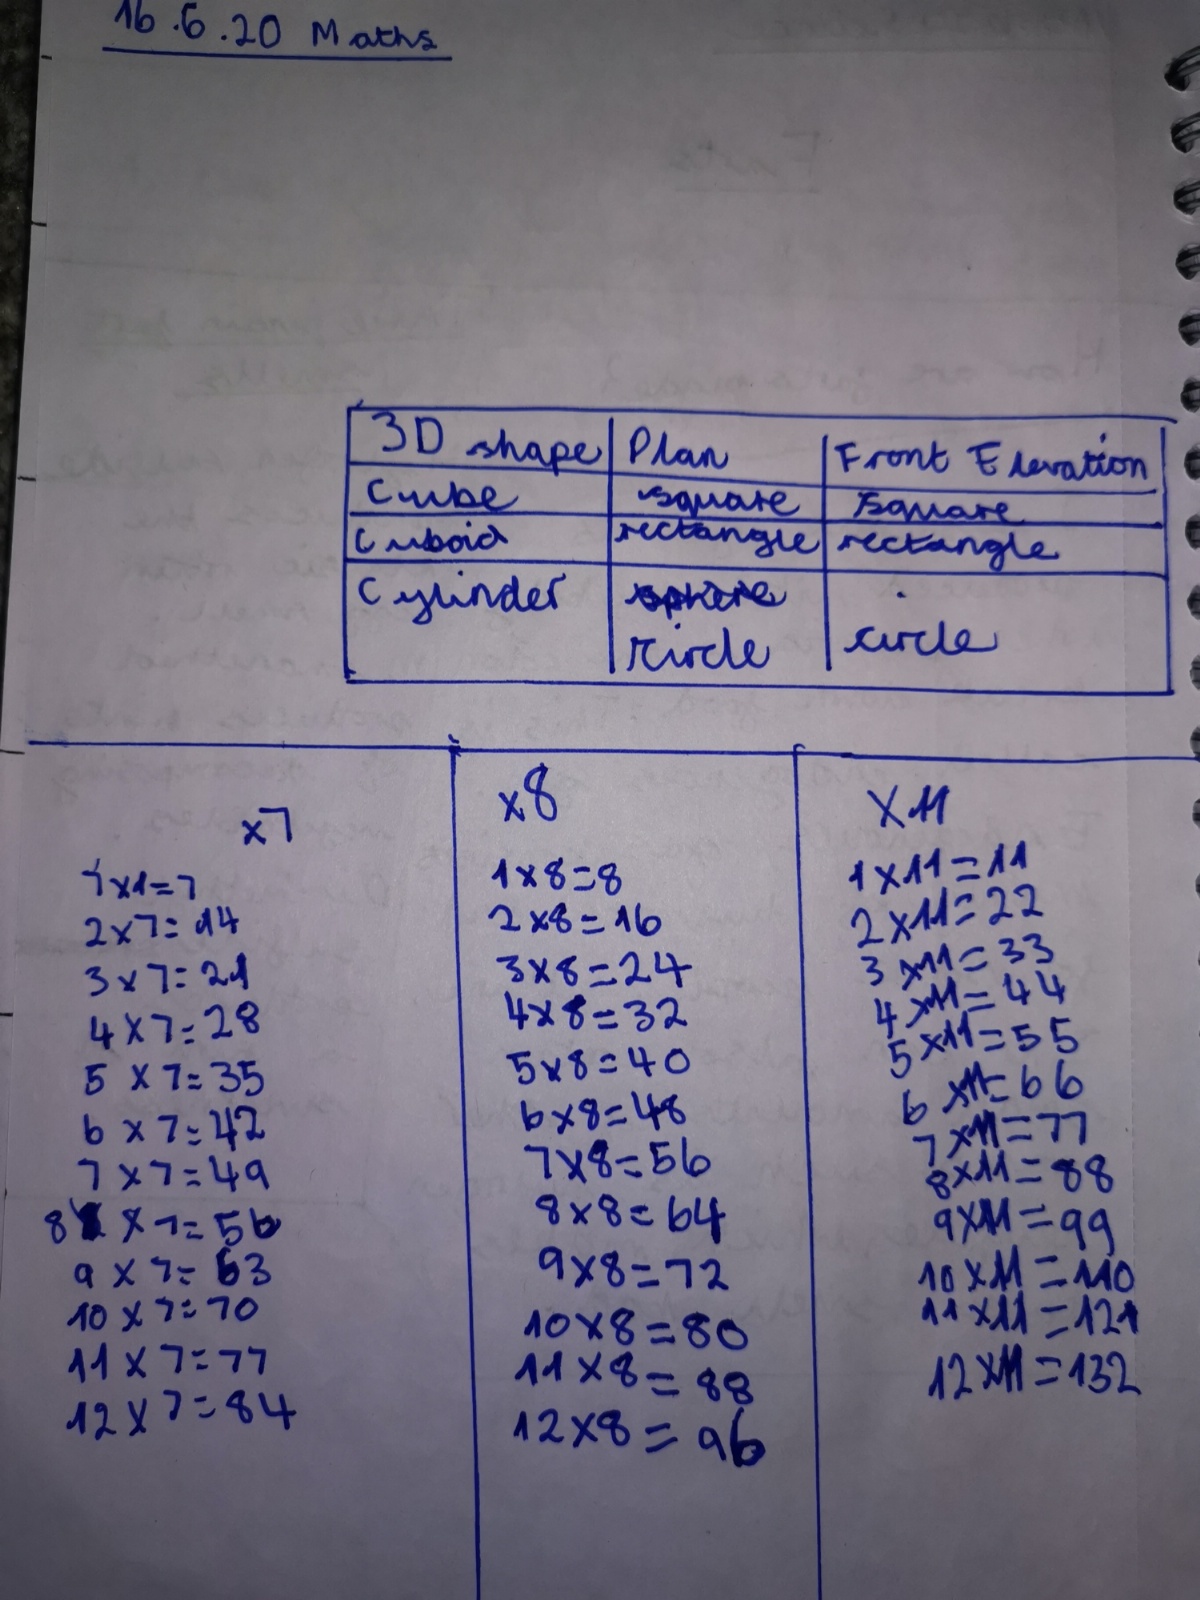 16.6.20 Maths
3D shape Plan Front Elevation
Cube square square
Cuboid rectangle rectangle
Cylinder
circle circle
x7
7x1=7
2x7=14
3x7=21
4x7=28
5x7=35
6x7=42
7x7=49
8x7=56
9x7=63
10x7=70
11x7=77
12x7=84
x8
1x8=8
2x8=16
3x8=24
4x8=32
5x8=40
6x8=48
7x8=56
8x8=64
9x8=72
10x8=80
11x8=88
12x8=96
x11
1x11=11
2x11=22
3x11=33
4x11=44
5x11=55
6x11=66
7x11=77
8x11=88
9x11=99
10x11=110
11x11=121
12x11=132